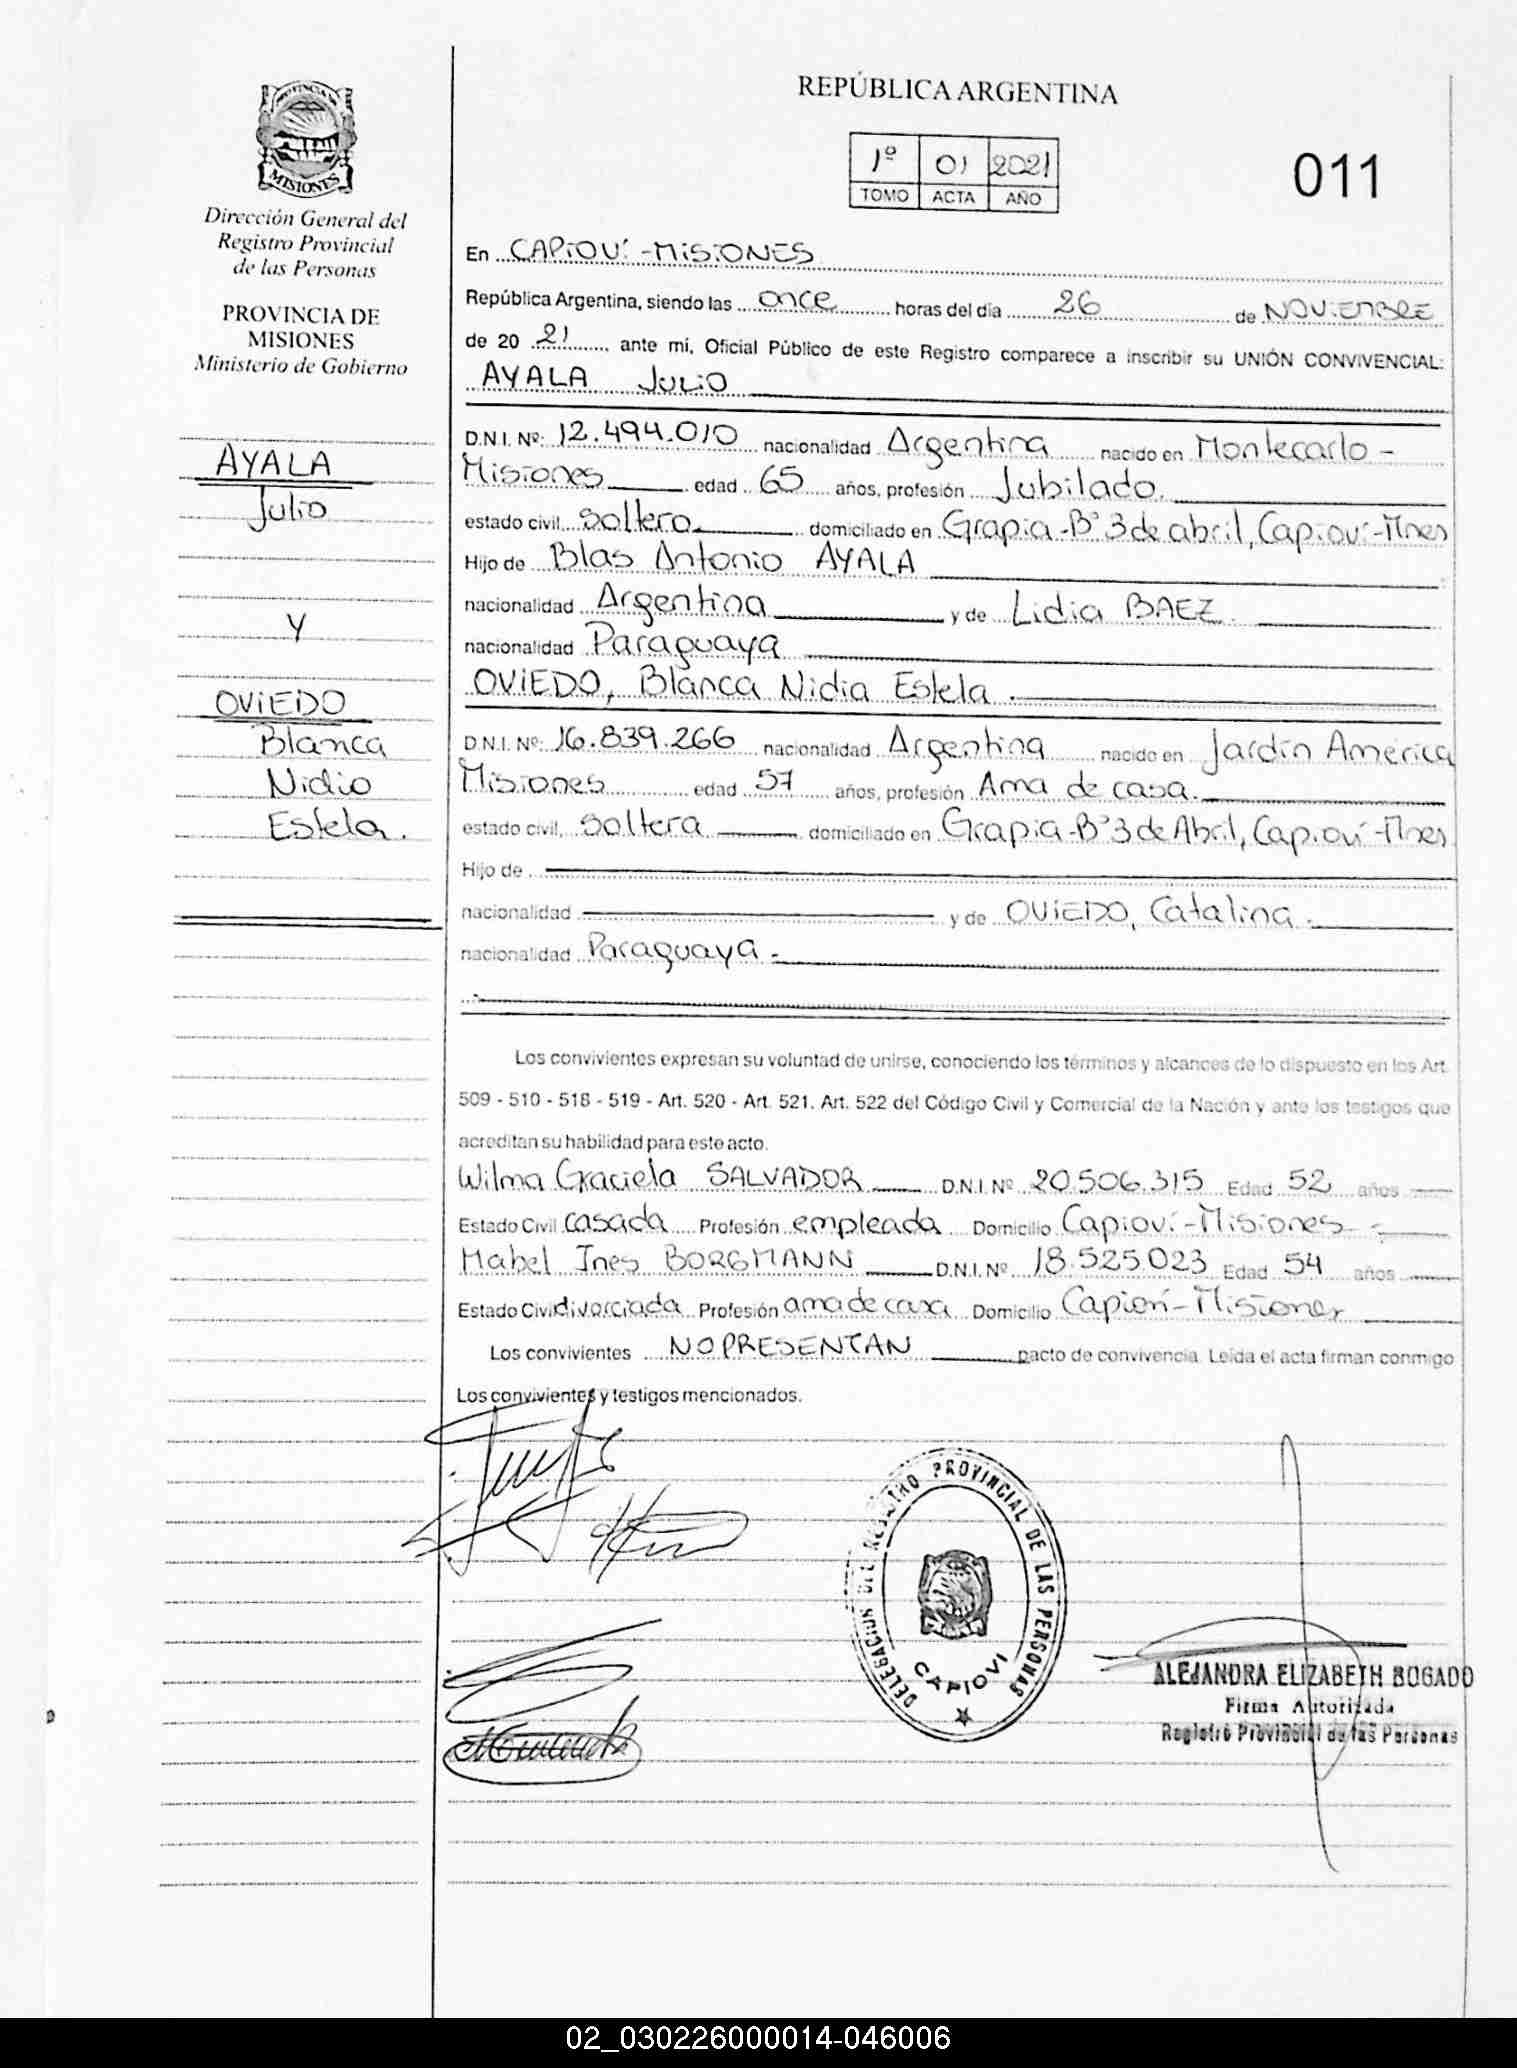 PROVINCIA DE
MISIONES
Dirección General del
Registro Provincial
de las Personas
PROVINCIA DE
MISIONES
Ministerio de Gobierno
AYALA
Julio
Y
OVIEDO
Blanca
Nidia
Estela.
REPÚBLICA ARGENTINA
1º 01 2021
TOMO ACTA AÑO
011
En CAPIOVÍ - MISIONES
República Argentina, siendo las once horas del día 26 de NOVIEMBRE
de 20 21 ante mí, Oficial Público de este Registro comparece a inscribir su UNIÓN CONVIVENCIAL:
AYALA Julio
D.N.I. Nº: 12.494.010 nacionalidad Argentina nacido en Montecarlo -
Misiones edad 65 años, profesión Jubilado.
estado civil soltero domiciliado en Grapia - Bº 3 de abril, Capioví - Mnes
Hijo de Blas Antonio AYALA
nacionalidad Argentina y de Lidia BAEZ.
nacionalidad Paraguaya
OVIEDO, Blanca Nidia Estela.
D.N.I. Nº: 16.839.266 nacionalidad Argentina nacido en Jardín América
Misiones edad 57 años, profesión Ama de casa.
estado civil soltera domiciliado en Grapia - Bº 3 de Abril, Capioví - Mnes
Hijo de
nacionalidad y de OVIEDO, Catalina.
nacionalidad Paraguaya.
Los convivientes expresan su voluntad de unirse, conociendo los términos y alcances de lo dispuesto en los Art.
509 - 510 - 518 - 519 - Art. 520 - Art. 521. Art. 522 del Código Civil y Comercial de la Nación y ante los testigos que
acreditan su habilidad para este acto.
Wilma Graciela SALVADOR D.N.I. Nº 20.506.315 Edad 52 años
Estado Civil casada Profesión empleada Domicilio Capioví - Misiones -
Mabel Ines BORGMANN D.N.I. Nº 18.525.023 Edad 54 años
Estado Civil divorciada Profesión ama de casa Domicilio Capioví - Misiones
Los convivientes NO PRESENTAN pacto de convivencia. Leída el acta firman conmigo
Los convivientes y testigos mencionados.
DELEGACION DEL REGISTRO PROVINCIAL DE LAS PERSONAS
CAPIOVI
ALEJANDRA ELIZABETH BOGADO
Firma Autorizada
Registro Provincial de las Personas
02_030226000014-046006